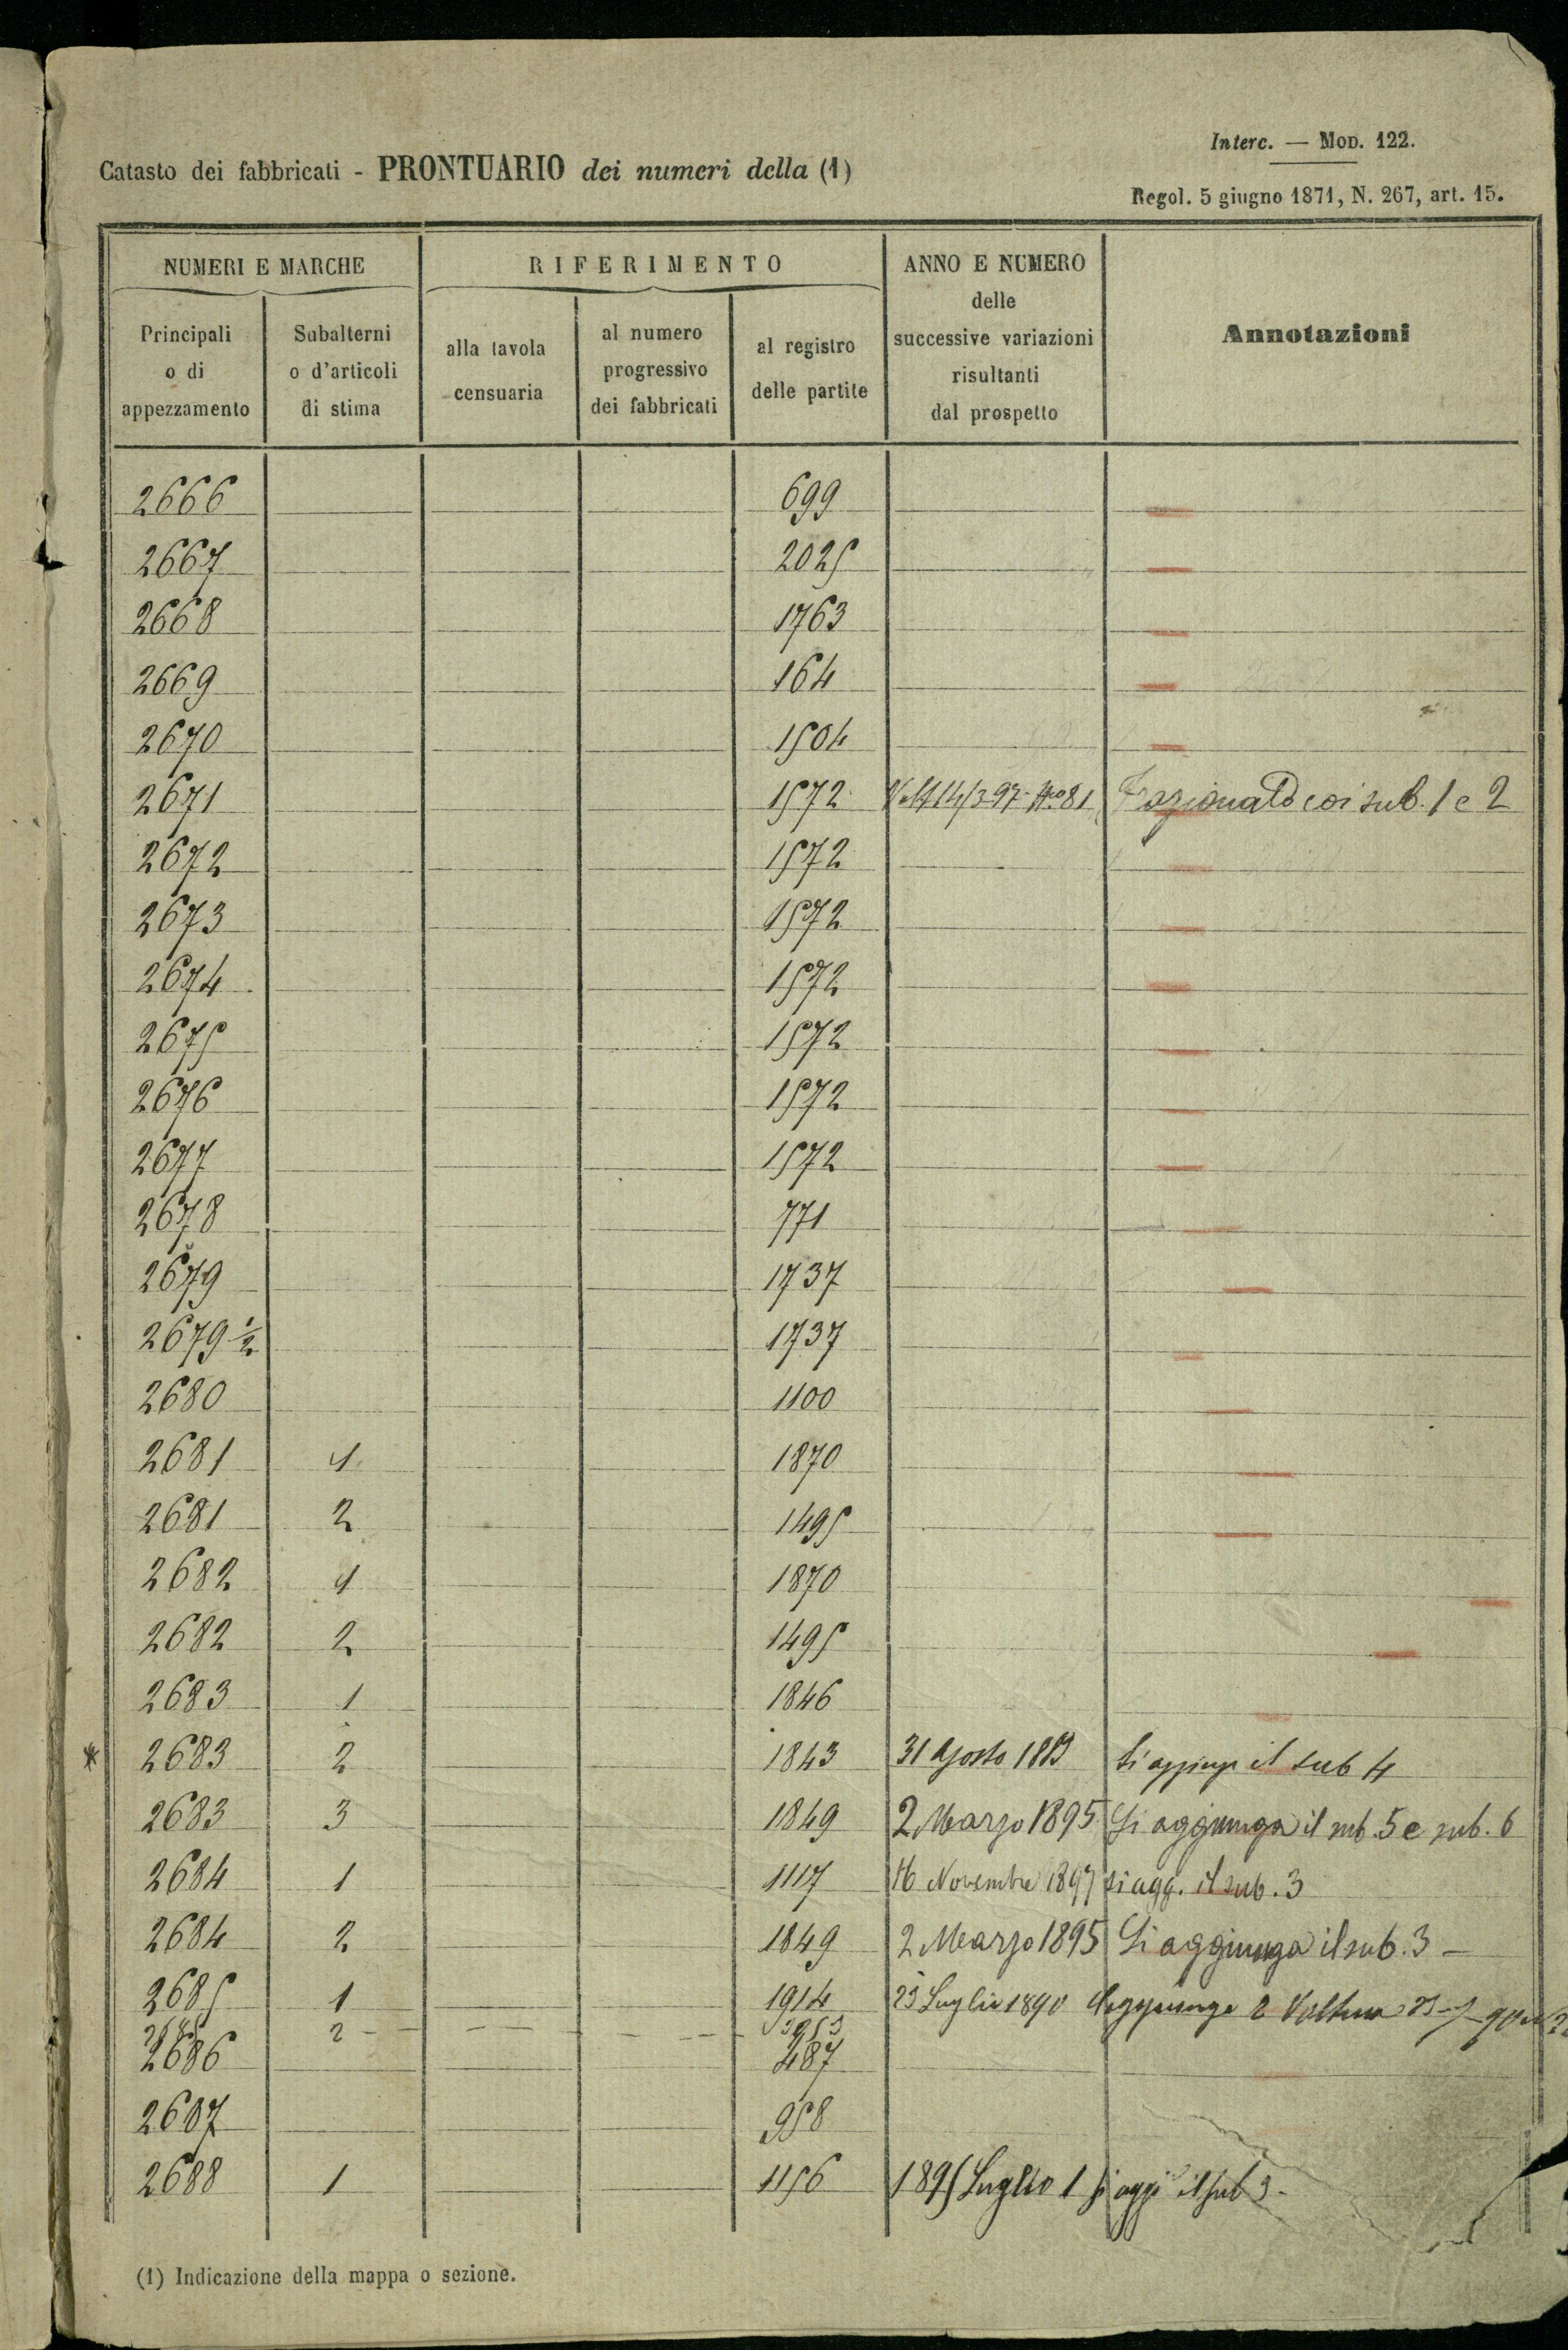 Interc. — MOD. 122.
Catasto dei fabbricati - PRONTUARIO dei numeri della (1)
Regol. 5 giugno 1871, N. 267, art. 15.
NUMERI E MARCHE
RIFERIMENTO
ANNO E NUMERO delle successive variazioni risultanti dal prospetto
Annotazioni
Principali o di appezzamento
Subalterni o d'articoli di stima
alla tavola censuaria
al numero progressivo dei fabbricati
al registro delle partite
2666 699
2667 2025
2668 1763
2669 164
2670 1504
2671 1572 14/3 97 81 coi sub. 1 e 2
2672 1572
2673 1572
2674 1572
2675 1572
2676 1572
2677 1572
2678 771
2679 1737
2679 1/2 1737
2680 1100
2681 1 1870
2681 2 1495
2682 1 1870
2682 2 1495
2683 1 1846
* 2683 2 1843 31 Agosto il sub 4
2683 3 1849 2 Marzo 1895 Si aggiunga il sub. 5 e sub. 6
2684 1 1117 16 Novembre 1897 si agg. il sub. 3
2684 2 1849 2 Marzo 1895 Si aggiunga il sub. 3 —
2685 1 1914 Luglio 1890
2
2686 487
2687 958
2688 1 1156 1895 Luglio 1 il sub 3 -
(1) Indicazione della mappa o sezione.